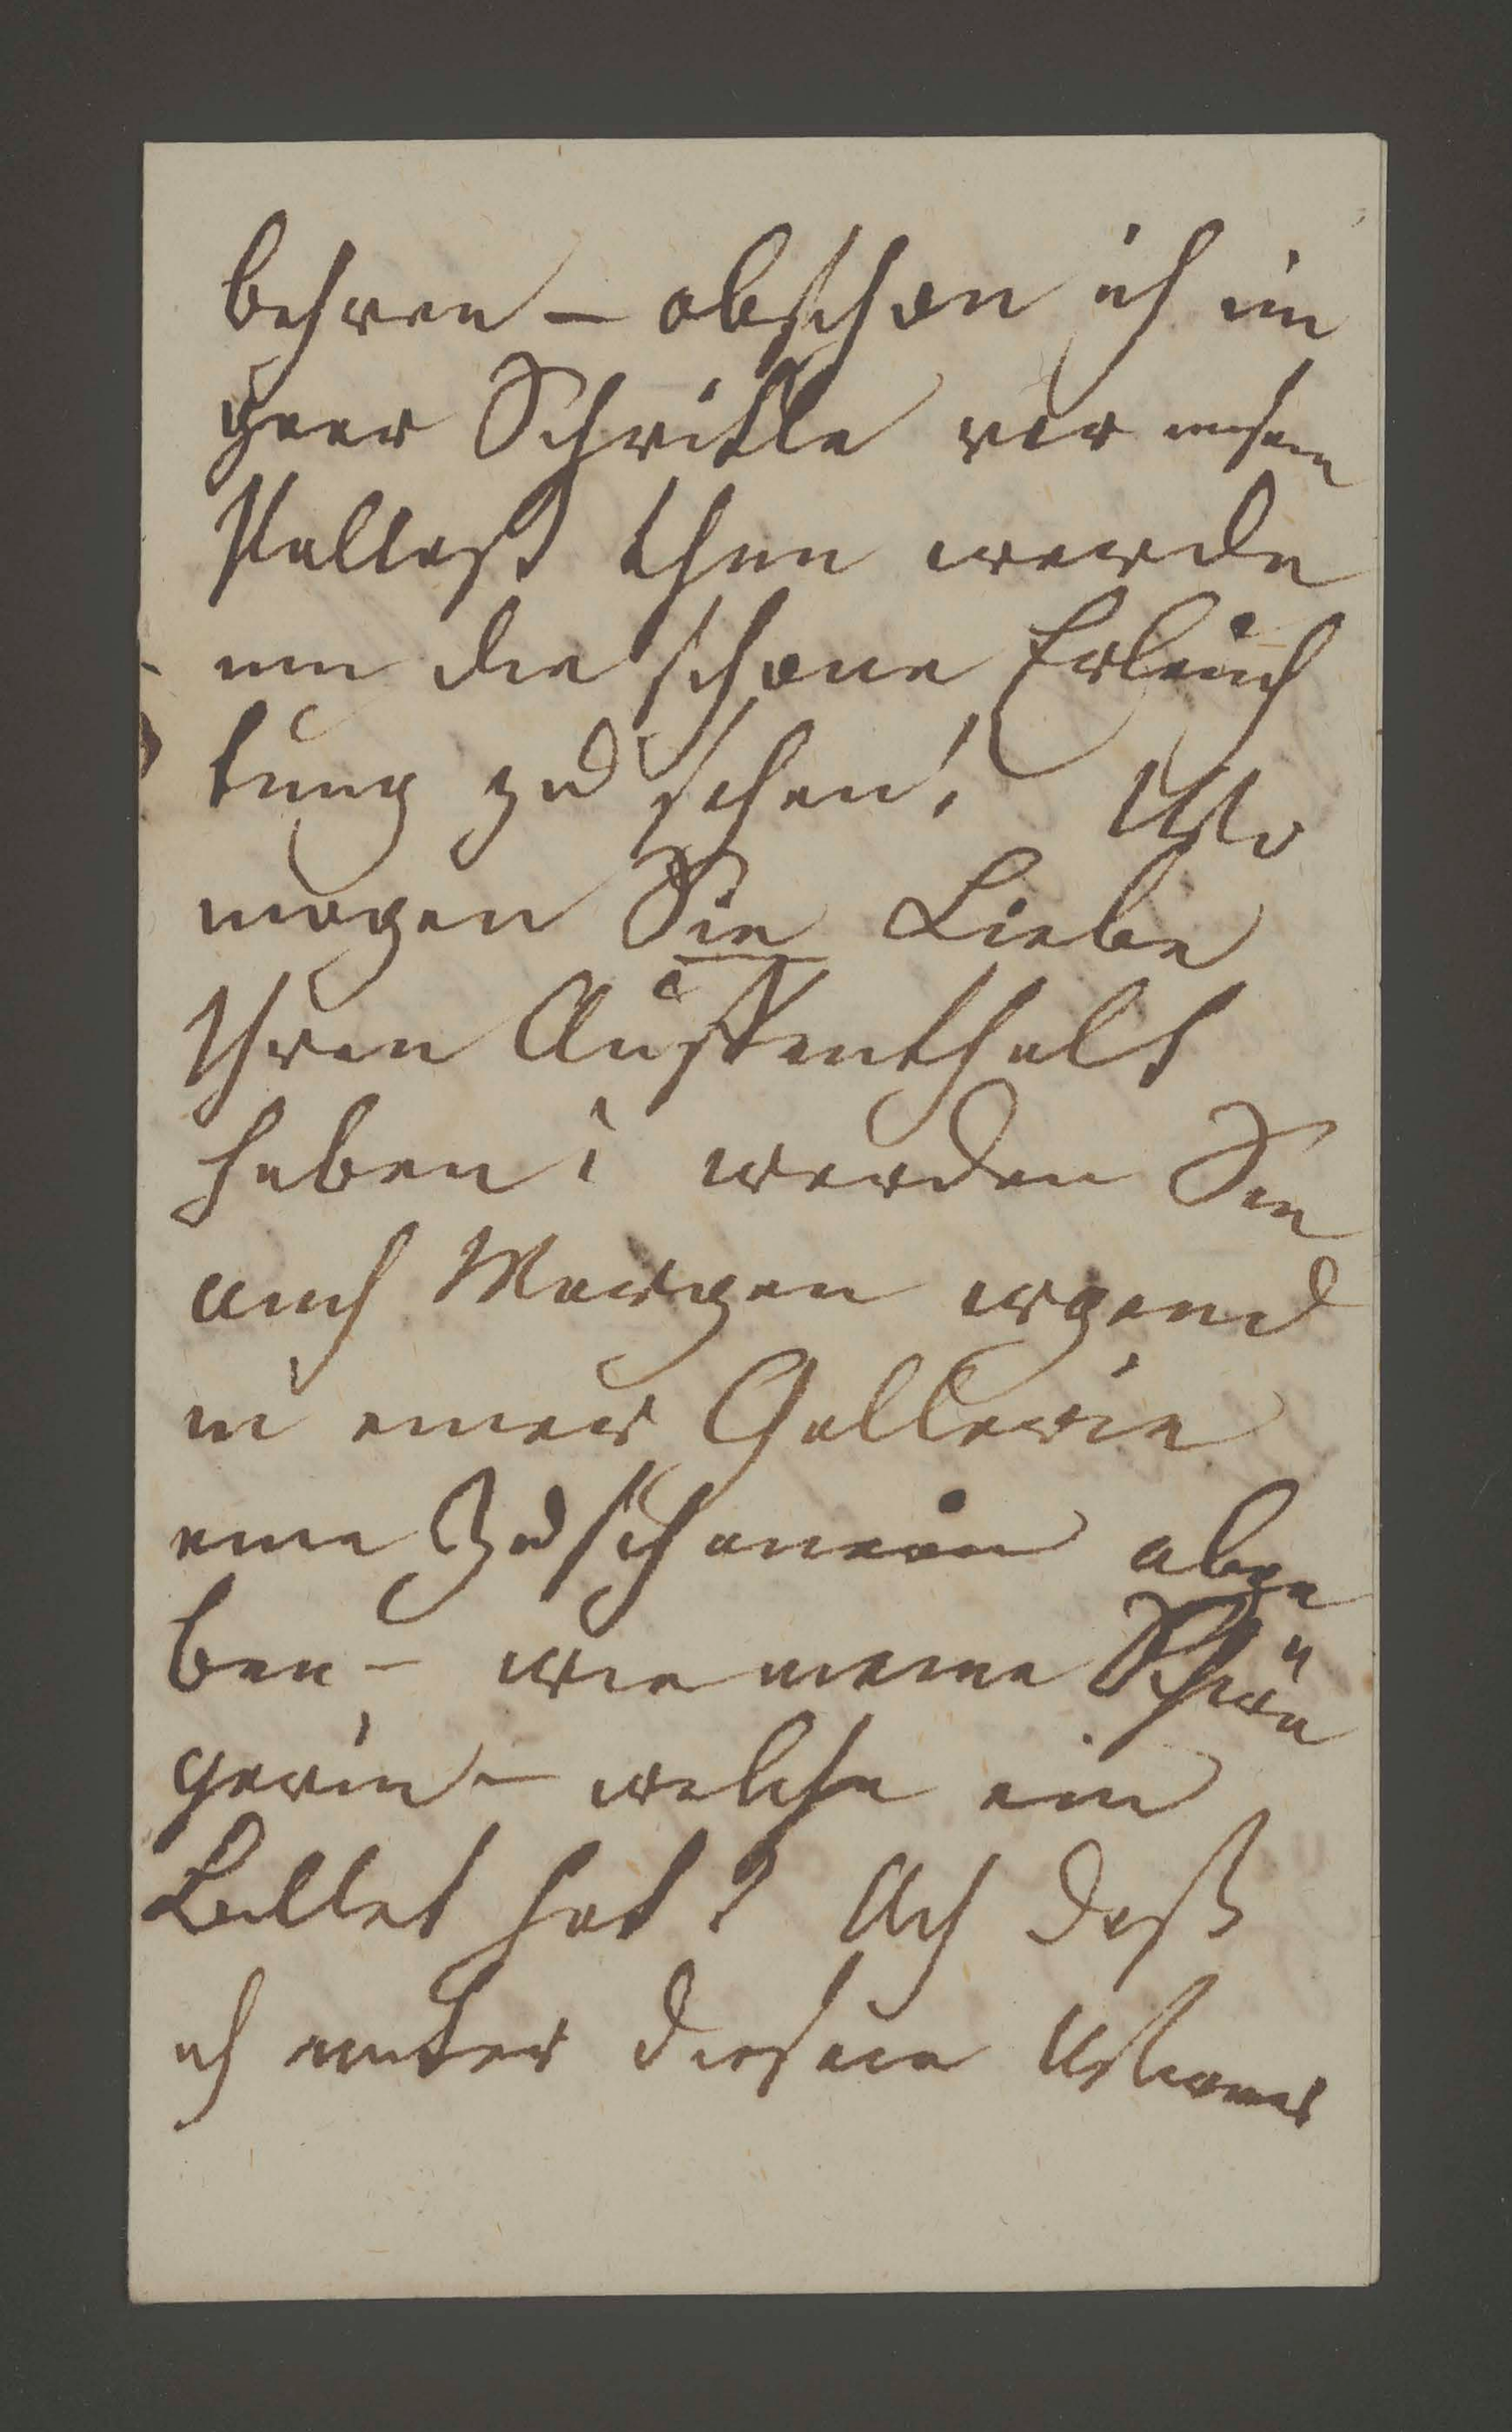 behren – obschon ich ein
paar Schritte vor unsern
Pallast thun werde
um die schöne Erleuch
tung zu sehen! Wo
mögen Sie Liebe
Ihren Auffenthalt
haben? werden Sie
auch Morgen irgend
in einer Gallerie
eine Zuschauerin abge
ben – wie meine Schwä
gerin – welche ein
Billet hat? Ach daß
ich unter diesem